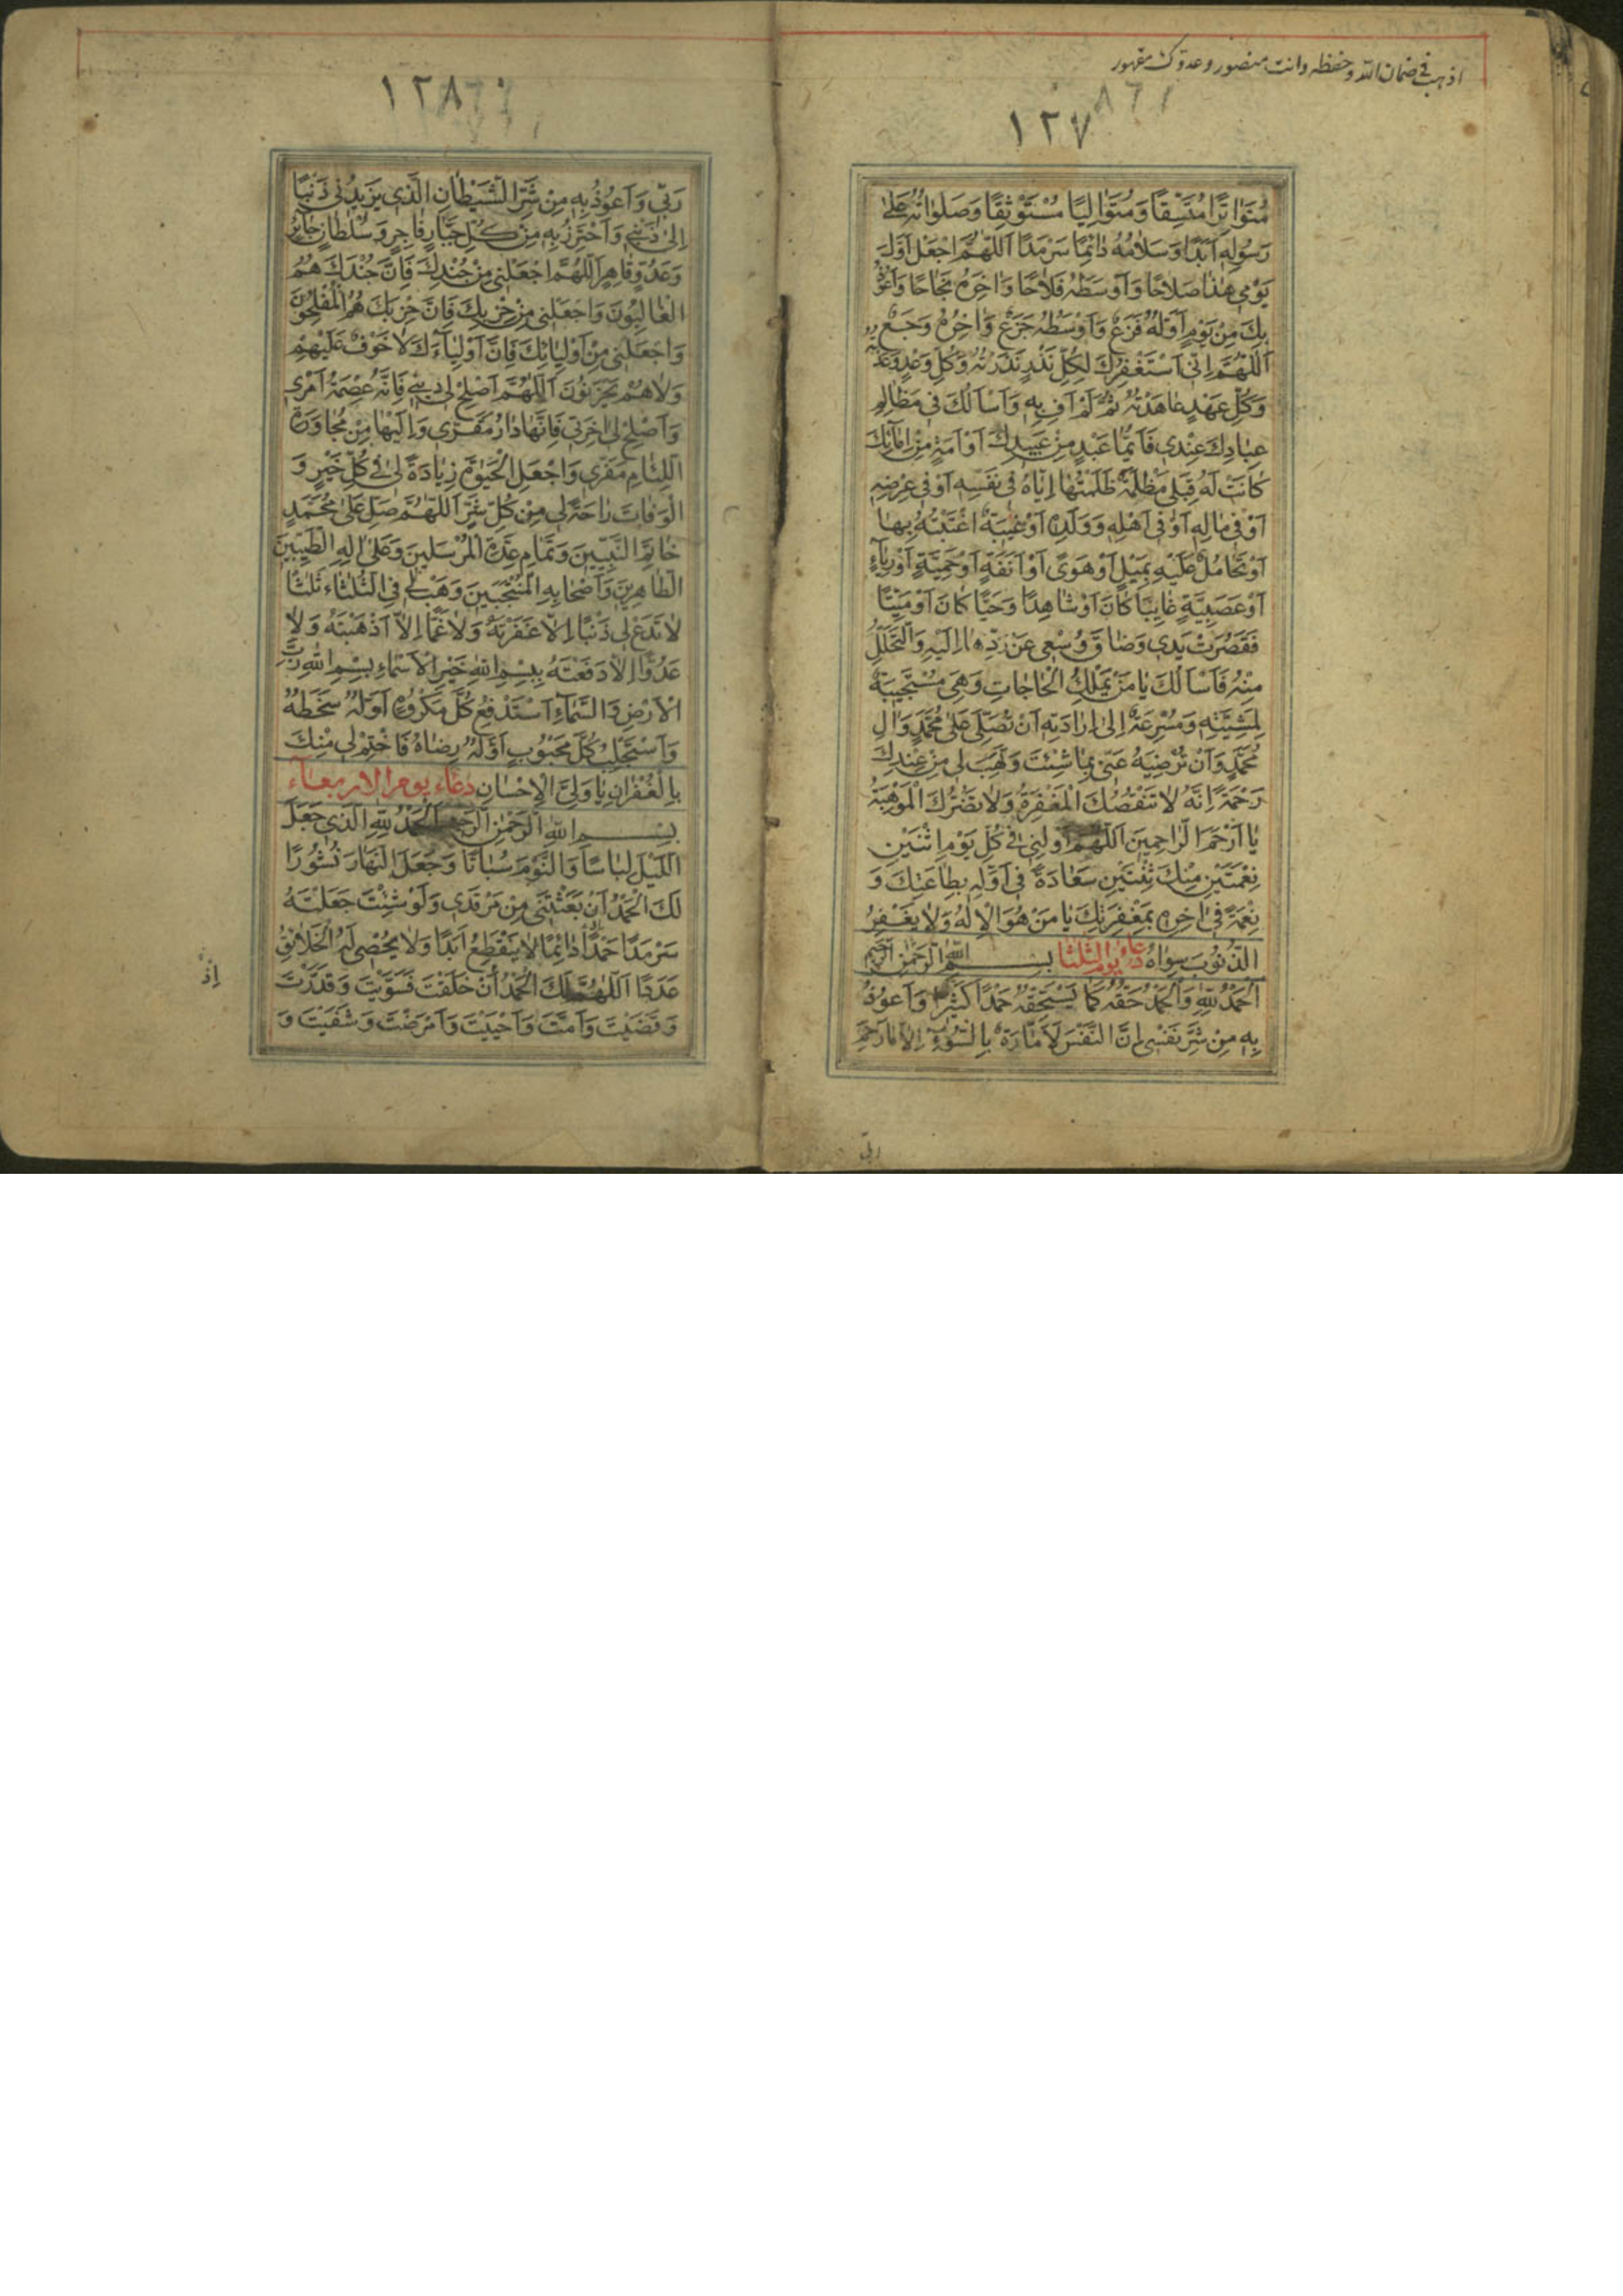 اذهب في ضمان الله وحفظه وانت منصور وعدوك مقهور
١٢٧
مُتَوَاتِرًا مُتَّسِقًا وَمُتَوَالِيًا مُسْتَوْثِقًا وَصَلَوَاتُهُ عَلَى
رَسُولِهِ أَبَدًا وَسَلَامُهُ دَائِمًا سَرْمَدًا اَللّٰهُمَّ اجْعَلْ أَوَّلَ
يَوْمِي هٰذَا صَلَاحًا وَأَوْسَطَهُ فَلَاحًا وَاٰخِرَهُ نَجَاحًا وَأَعُوذُ
بِكَ مِنْ يَوْمٍ أَوَّلُهُ فَزَعٌ وَأَوْسَطُهُ جَزَعٌ وَاٰخِرُهُ وَجَعٌ
اَللّٰهُمَّ إِنِّي أَسْتَغْفِرُكَ لِكُلِّ نَذْرٍ نَذَرْتُهُ وَكُلِّ وَعْدٍ وَعَدْتُهُ
وَكُلِّ عَهْدٍ عَاهَدْتُهُ ثُمَّ لَمْ أَفِ بِهِ وَأَسْأَلُكَ فِي مَظَالِمِ
عِبَادِكَ عِنْدِي فَأَيُّمَا عَبْدٍ مِنْ عَبِيدِكَ أَوْ أَمَةٍ مِنْ إِمَائِكَ
كَانَتْ لَهُ قِبَلِي مَظْلِمَةٌ ظَلَمْتُهَا إِيَّاهُ فِي نَفْسِهِ أَوْ فِي عِرْضِهِ
أَوْ فِي مَالِهِ أَوْ فِي أَهْلِهِ وَوَلَدِهِ أَوْ غِيبَةٌ اغْتَبْتُهُ بِهَا
أَوْ تَحَامُلٌ عَلَيْهِ بِمَيْلٍ أَوْ هَوًى أَوْ أَنَفَةٍ أَوْ حَمِيَّةٍ أَوْ رِيَاءٍ
أَوْ عَصَبِيَّةٍ غَايِبًا كَانَ أَوْ شَاهِدًا وَحَيًّا كَانَ أَوْ مَيِّتًا
فَقَصُرَتْ يَدِي وَضَاقَ وُسْعِي عَنْ رَدِّهَا إِلَيْهِ وَالتَّحَلُّلِ
مِنْهُ فَأَسْأَلُكَ يَا مَنْ يَمْلِكُ الْحَاجَاتِ وَهِيَ مُسْتَجِيبَةٌ
لِمَشِيَّتِهِ وَمُسْرِعَةٌ إِلَى إِرَادَتِهِ أَنْ تُصَلِّيَ عَلَى مُحَمَّدٍ وَاٰلِ
مُحَمَّدٍ وَأَنْ تُرْضِيَهُ عَنِّي بِمَا شِئْتَ وَتَهَبَ لِي مِنْ عِنْدِكَ
رَحْمَةً إِنَّهُ لَا تَنْقُصُكَ الْمَغْفِرَةُ وَلَا تَضُرُّكَ الْمَوْهِبَةُ
يَا أَرْحَمَ الرَّاحِمِينَ اَللّٰهُمَّ أَوْلِنِي فِي كُلِّ يَوْمِ اثْنَيْنِ
نِعْمَتَيْنِ مِنْكَ ثِنْتَيْنِ سَعَادَةً فِي أَوَّلِهِ بِطَاعَتِكَ وَ
نِعْمَةً فِي اٰخِرِهِ بِمَغْفِرَتِكَ يَا مَنْ هُوَ الْإِلٰهُ وَلَا يَغْفِرُ
الذُّنُوبَ سِوَاهُ دعاء يوم الثلثا بسم الله الرحمن الرحيم
اَلْحَمْدُ لِلّٰهِ وَالْحَمْدُ حَقُّهُ كَمَا يَسْتَحِقُّهُ حَمْدًا كَثِيرًا وَأَعُوذُ
بِهِ مِنْ شَرِّ نَفْسِي إِنَّ النَّفْسَ لَأَمَّارَةٌ بِالسُّوءِ إِلَّا مَا رَحِمَ
ربي
١٢٨
رَبِّي وَأَعُوذُ بِهِ مِنْ شَرِّ الشَّيْطَانِ الَّذِي يَزِيدُنِي ذَنْبًا
إِلَى ذَنْبِي وَأَحْتَرِزُ بِهِ مِنْ كُلِّ جَبَّارٍ فَاجِرٍ وَسُلْطَانٍ جَائِرٍ
وَعَدُوٍّ قَاهِرٍ اَللّٰهُمَّ اجْعَلْنِي مِنْ جُنْدِكَ فَإِنَّ جُنْدَكَ هُمُ
الْغَالِبُونَ وَاجْعَلْنِي مِنْ حِزْبِكَ فَإِنَّ حِزْبَكَ هُمُ الْمُفْلِحُونَ
وَاجْعَلْنِي مِنْ أَوْلِيَائِكَ فَإِنَّ أَوْلِيَاءَكَ لَا خَوْفٌ عَلَيْهِمْ
وَلَا هُمْ يَحْزَنُونَ اَللّٰهُمَّ أَصْلِحْ لِي دِينِي فَإِنَّهُ عِصْمَةُ أَمْرِي
وَأَصْلِحْ لِي اٰخِرَتِي فَإِنَّهَا دَارُ مَقَرِّي وَإِلَيْهَا مِنْ مُجَاوَرَةِ
اللِّئَامِ مَفَرِّي وَاجْعَلِ الْحَيٰوةَ زِيَادَةً لِي فِي كُلِّ خَيْرٍ وَ
الْوَفَاتَ رَاحَةً لِي مِنْ كُلِّ شَرٍّ اَللّٰهُمَّ صَلِّ عَلَى مُحَمَّدٍ
خَاتَمِ النَّبِيِّينَ وَتَمَامِ عِدَّةِ الْمُرْسَلِينَ وَعَلَى اٰلِهِ الطَّيِّبِينَ
الطَّاهِرِينَ وَأَصْحَابِهِ الْمُنْتَجَبِينَ وَهَبْ لِي فِي الثَّلٰثَاءِ ثَلٰثًا
لَا تَدَعْ لِي ذَنْبًا إِلَّا غَفَرْتَهُ وَلَا غَمًّا إِلَّا أَذْهَبْتَهُ وَلَا
عَدُوًّا إِلَّا دَفَعْتَهُ بِبِسْمِ اللّٰهِ خَيْرِ الْأَسْمَاءِ بِسْمِ اللّٰهِ رَبِّ
الْأَرْضِ وَالسَّمَاءِ أَسْتَدْفِعُ كُلَّ مَكْرُوهٍ أَوَّلُهُ سَخَطُهُ
وَأَسْتَجْلِبُ كُلَّ مَحْبُوبٍ أَوَّلُهُ رِضَاهُ فَاخْتِمْ لِي مِنْكَ
بِالْغُفْرَانِ يَا وَلِيَّ الْإِحْسَانِ دعاء يوم الاربعاء
بسم الله الرحمن الرحيم اَلْحَمْدُ لِلّٰهِ الَّذِي جَعَلَ
اللَّيْلَ لِبَاسًا وَالنَّوْمَ سُبَاتًا وَجَعَلَ النَّهَارَ نُشُورًا
لَكَ الْحَمْدُ أَنْ بَعَثْتَنِي مِنْ مَرْقَدِي وَلَوْ شِئْتَ جَعَلْتَهُ
سَرْمَدًا حَمْدًا دَائِمًا لَا يَنْقَطِعُ أَبَدًا وَلَا يُحْصِي لَهُ الْخَلَائِقُ
عَدَدًا اَللّٰهُمَّ لَكَ الْحَمْدُ أَنْ خَلَقْتَ فَسَوَّيْتَ وَقَدَّرْتَ
وَقَضَيْتَ وَأَمَتَّ وَأَحْيَيْتَ وَأَمْرَضْتَ وَشَفَيْتَ وَ